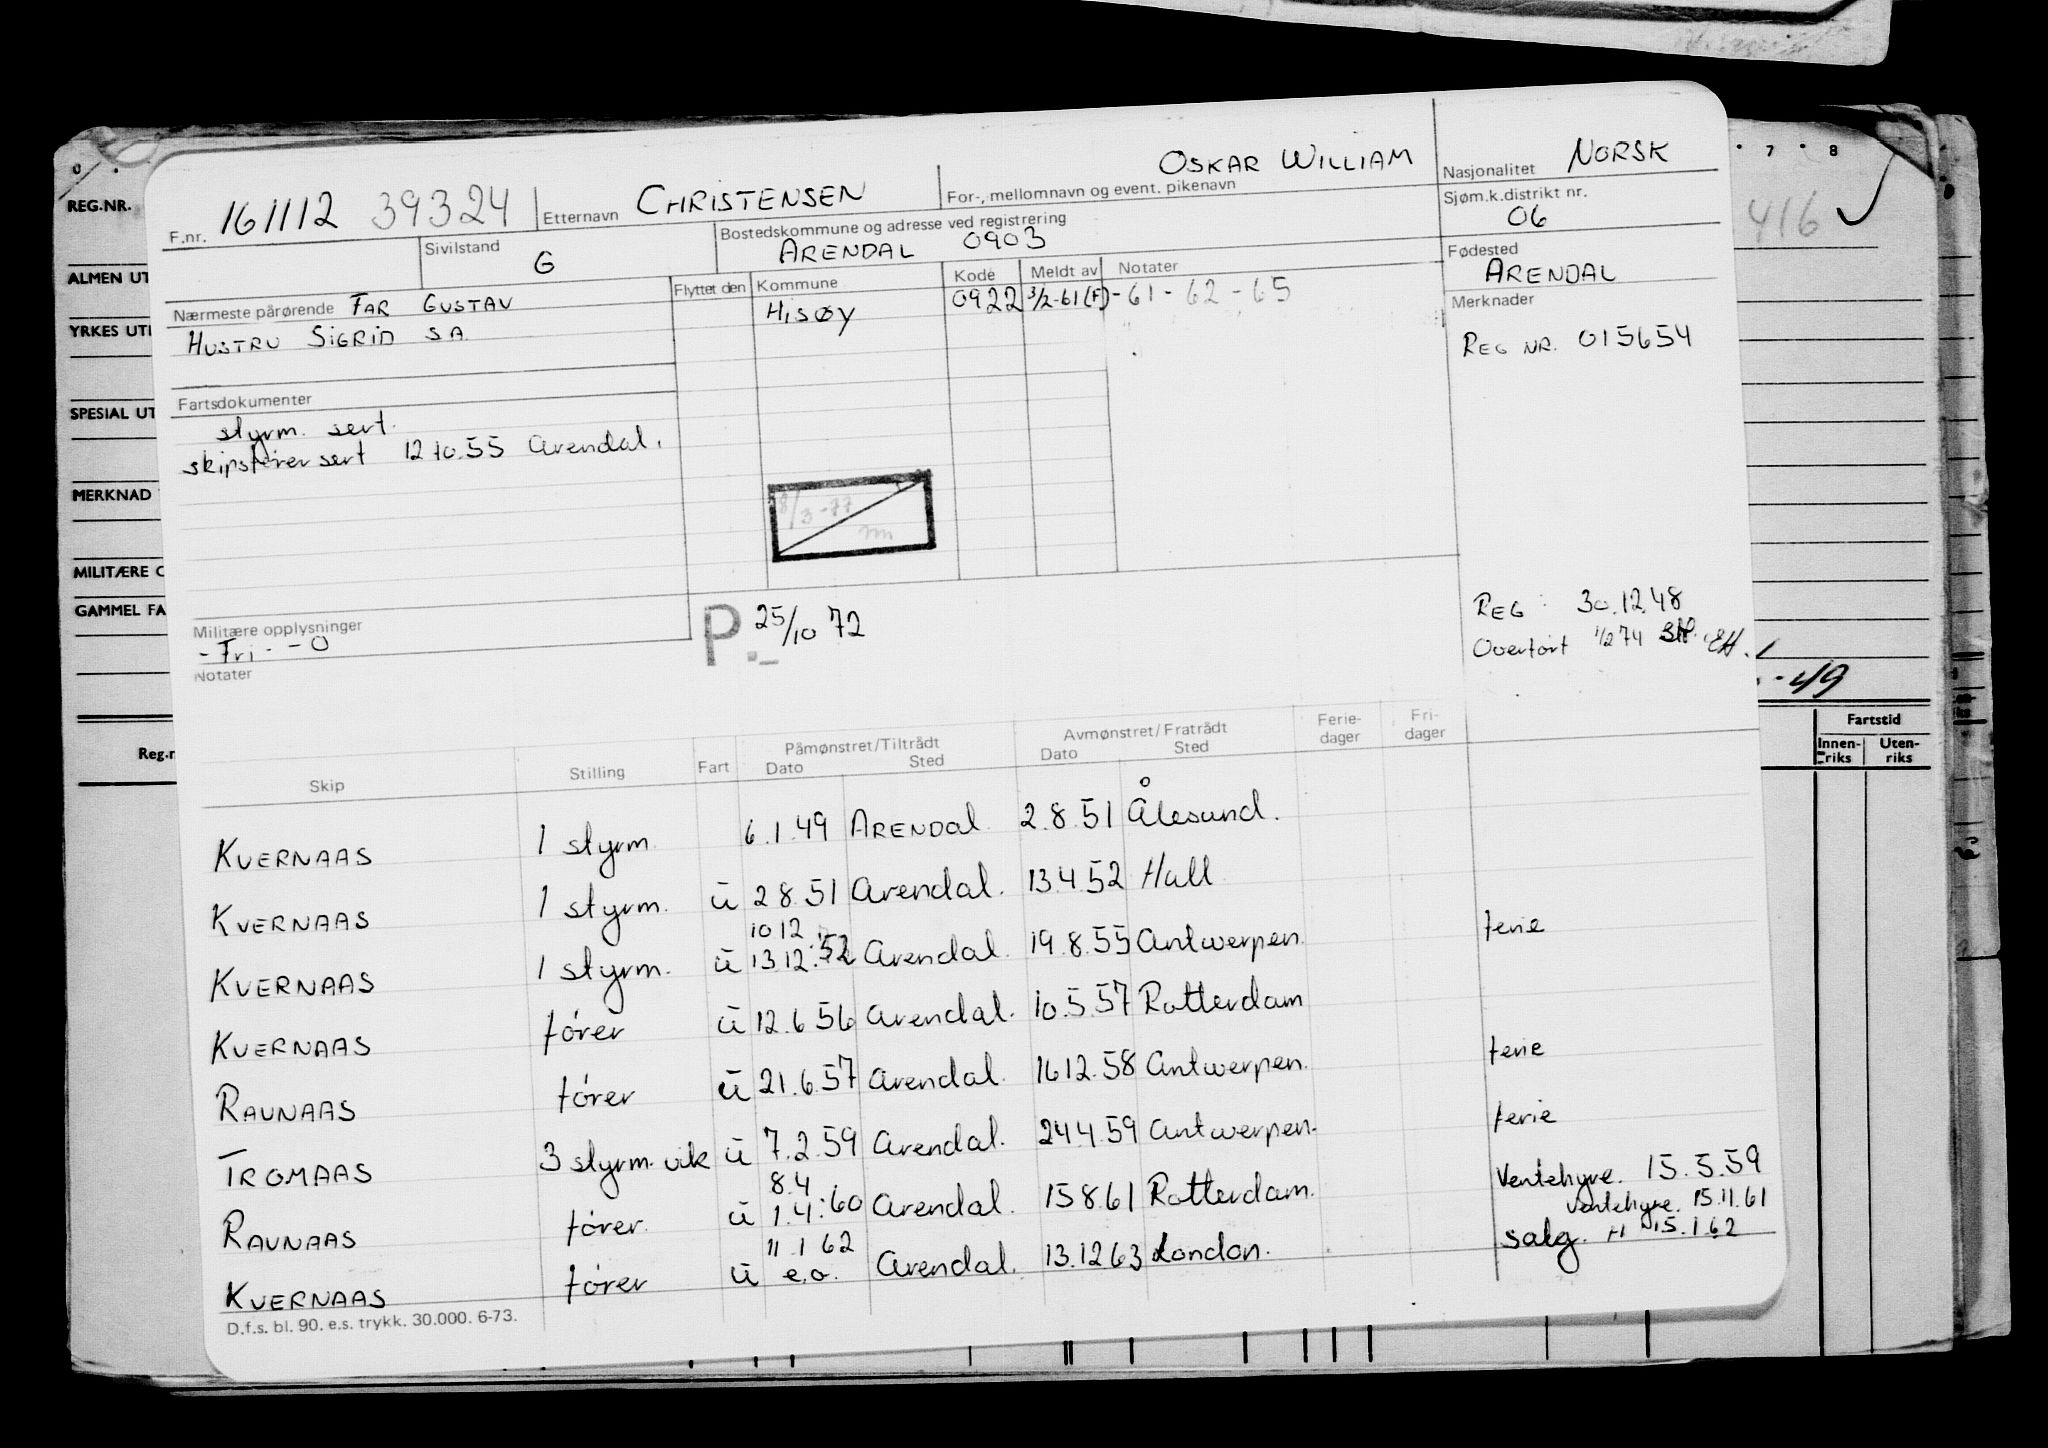 F.nr. 161112 39324 Etternavn CHRISTENSEN For-, mellomnavn og event. pikenavn OSKAR WILLIAM Nasjonalitet NORSK
Sivilstand G Bostedskommune og adresse ved registrering ARENDAL 0903 Sjøm.k.distrikt nr. 06
Nærmeste pårørende FAR GUSTAV
HUSTRU SIGRID SA.
Flyttet den Kommune Kode Meldt av Notater
HISØY 0922 3/2-61(F) -61 - 62 - 65
Fødested
ARENDAL
Merknader
REG NR. 015654
Fartsdokumenter
styrm. sert.
skipsfører sert 12.10.55 Arendal.
8/3-77
Militære opplysninger
- Fri - - 0
Notater
P. 25/10 72
REG : 30.12.48
Overført 1/2 74
Skip Stilling Fart Påmønstret/Tiltrådt Dato Sted Avmønstret/Fratrådt Dato Sted Ferie-dager Fri-dager
KVERNAAS 1 styrm. 6.1.49 ARENDAL. 2.8.51 Ålesund.
KVERNAAS 1 styrm. ū 2 8.51 Arendal. 13.4.52 Hull
10 12
KVERNAAS 1 styrm. ū 13 12.52 Arendal. 19.8.55 Antwerpen. ferie
KVERNAAS fører ū 12.6 56 Arendal. 10.5.57 Rotterdam
RAVNAAS fører ū 21.6.57 Arendal. 16 12.58 Antwerpen. ferie
TROMAAS 3 styrm. vik ū 7.2.59 Arendal. 24.4.59 Antwerpen. ferie
8.4
RAVNAAS fører. ū 1.4.60 Arendal. 15 8.61 Rotterdam. Ventehyre. 15.5.59
Ventehyre. 15.11.61
11 1 62
KVERNAAS fører ū e.o. Arendal. 13.12 63 London. salg. 15.1.62
D.f.s. bl. 90. e.s. trykk. 30.000. 6-73.
REG.NR.
ALMEN UT
YRKES UT
SPESIAL UT
MERKNAD
MILITÆRE
GAMMEL FA
Reg.n
0 . . 7 . 8
416
-49
Fartstid
Innen-riks Uten-riks